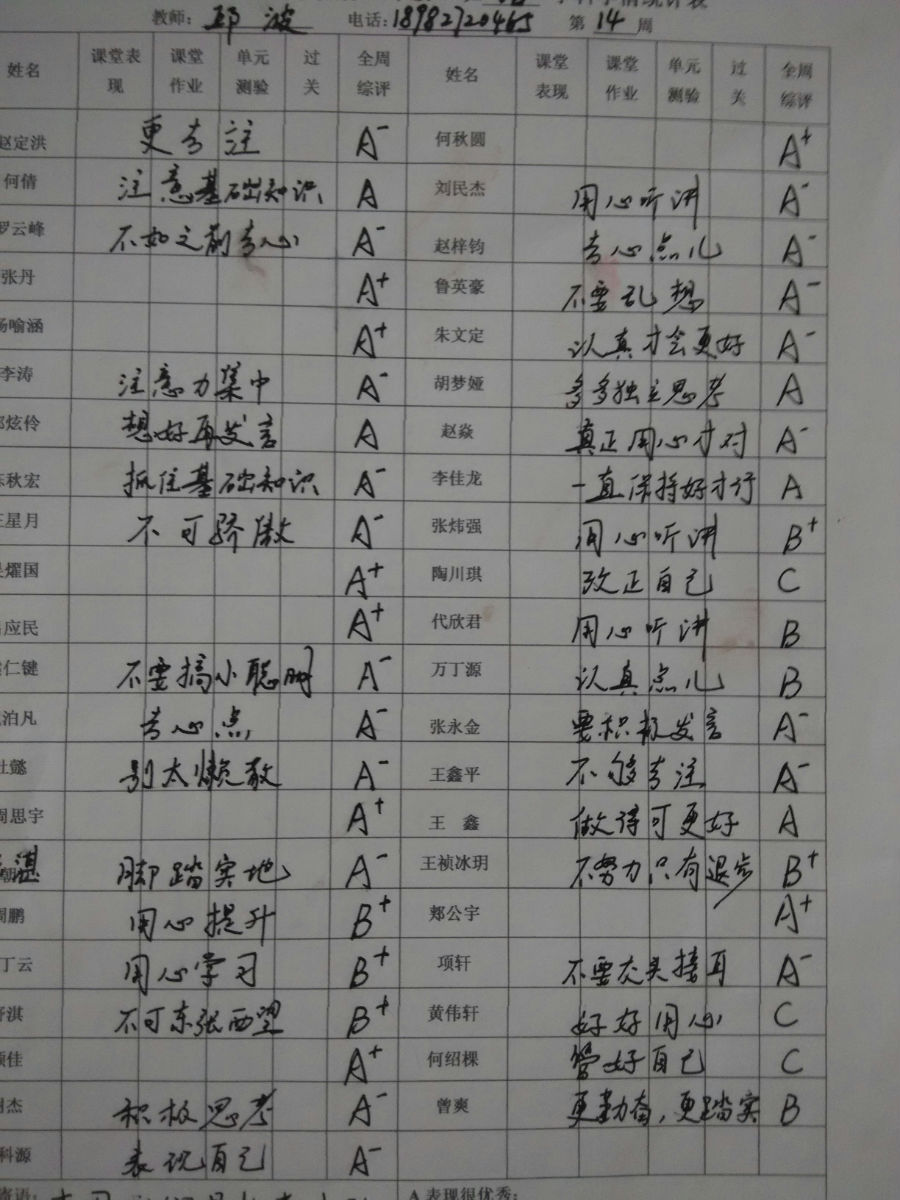 学科学情统计表
教师：邱波 电话：18982720465 第14周
姓名 课堂表现 课堂作业 单元测验 过关 全周综评 姓名 课堂表现 课堂作业 单元测验 过关 全周综评
赵定洪 更专注 A- 何秋圆 A+
何倩 注意基础知识 A 刘民杰 用心听讲 A-
罗云峰 不如之前专心 A- 赵梓钧 专心点儿 A-
张丹 A+ 鲁英豪 不要乱想 A-
杨喻涵 A+ 朱文定 认真才会更好 A-
李涛 注意力集中 A- 胡梦娅 多多独立思考 A
炫伶 想好再发言 A 赵焱 真正用心才对 A-
陈秋宏 抓住基础知识 A- 李佳龙 一直保持好才行 A
王星月 不可骄傲 A- 张炜强 用心听讲 B+
燿国 A+ 陶川琪 改正自己 C
应民 A+ 代欣君 用心听讲 B
仁键 不要搞小聪明 A- 万丁源 认真点儿 B
泊凡 专心点 A- 张永金 要积极发言 A-
杜懿 别太懒散 A- 王鑫平 不够专注 A-
周思宇 A+ 王鑫 做得可更好 A
湛 脚踏实地 A- 王祯冰玥 不努力只有退步 B+
周鹏 用心提升 B+ 郏公宇 A+
丁云 用心学习 B+ 项轩 不要交头接耳 A-
淇 不可东张西望 B+ 黄伟轩 好好用心 C
佳 A+ 何绍棵 管好自己 C
杰 积极思考 A- 曾爽 更勤奋，更踏实 B
科源 表现自己 A-
寄语： A 表现很优秀：